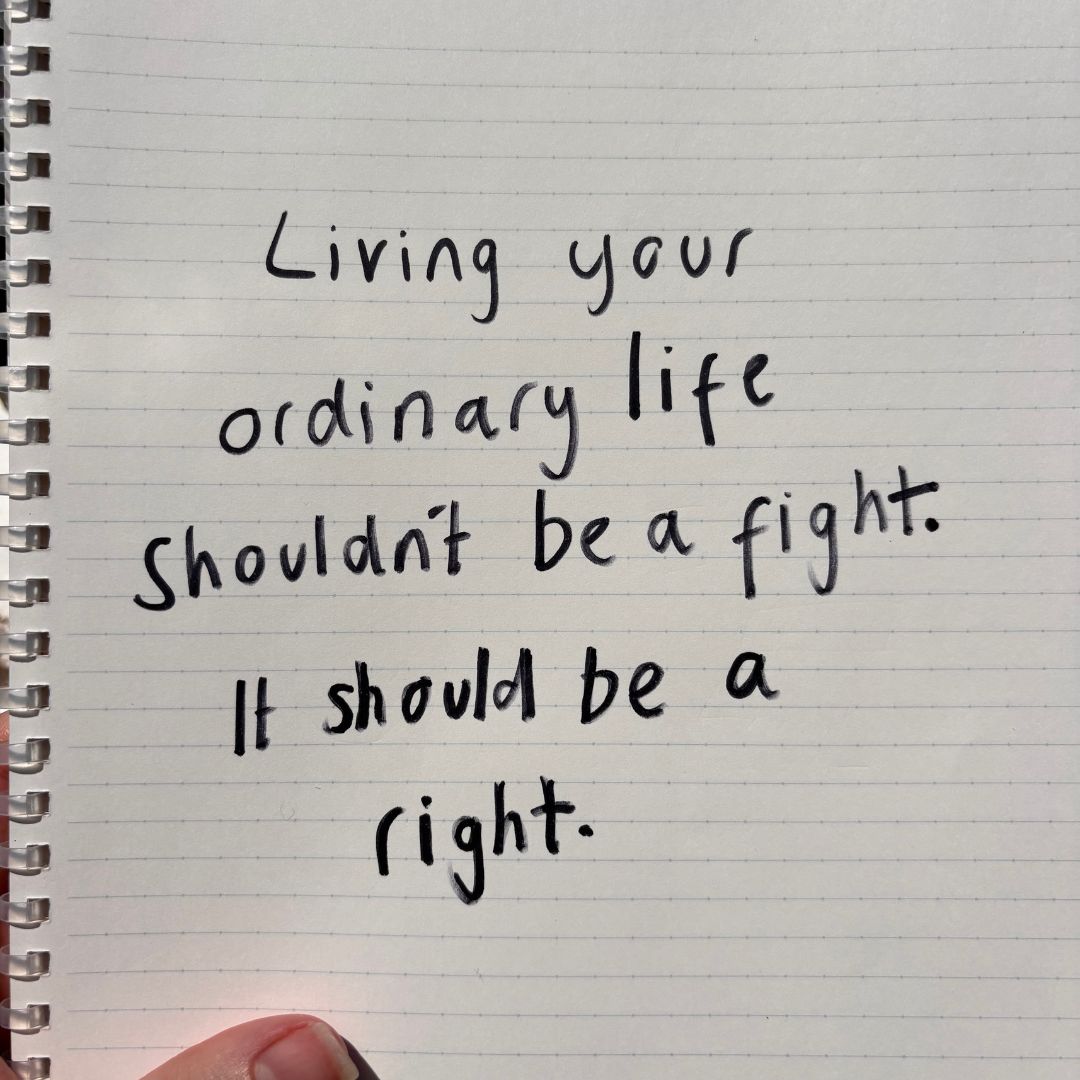 Living your
ordinary life
Shouldn't be a fight.
It should be a
right.